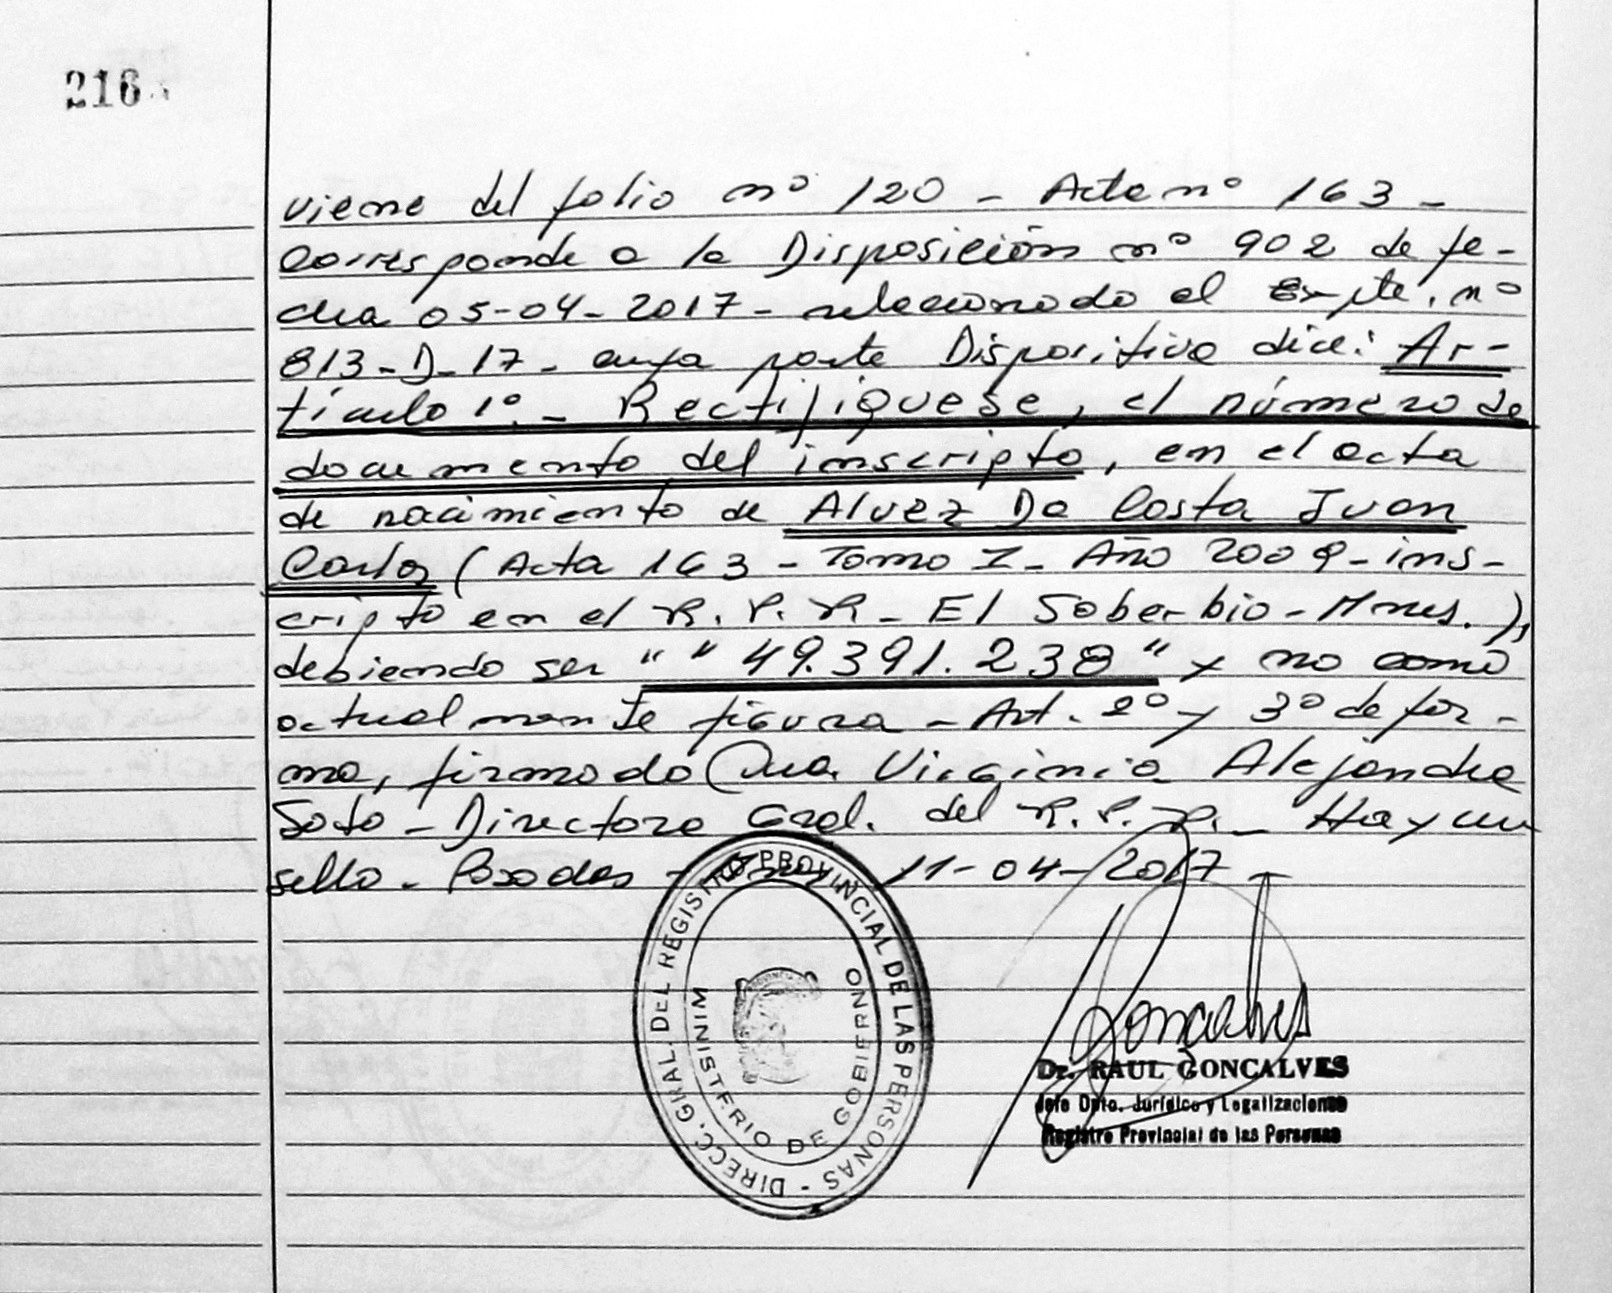 216
viene del folio nº 120 - Acta nº 163 -
Corresponde a la Disposición nº 902 de fe-
cha 05-04-2017 - relacionado al Expte. nº
813-D-17 - cuya parte Dispositiva dice: Ar-
tículo 1º.- Rectifíquese, el número de
documento del inscripto, en el acta
de nacimiento de Alvez Da Costa Juan
Carlos (Acta 163 - Tomo I - Año 2009 - ins-
cripto en el R.P.P. - El Soberbio - Mnes.),
debiendo ser " " 49.391.238 " y no como
actualmente figura - Art. 2º y 3º de for-
ma, firmado Dra. Virginia Alejandra
Soto - Directora Gral. del R.P.P. - Hay un
sello - Posadas - 11-04-2017 -
DIRECC. GRAL. DEL REGISTRO PROVINCIAL DE LAS PERSONAS -
MINISTERIO DE GOBIERNO
Goncalves
Dr. RAUL GONCALVES
Jefe Dpto. Jurídico y Legalizaciones
Registro Provincial de las Personas